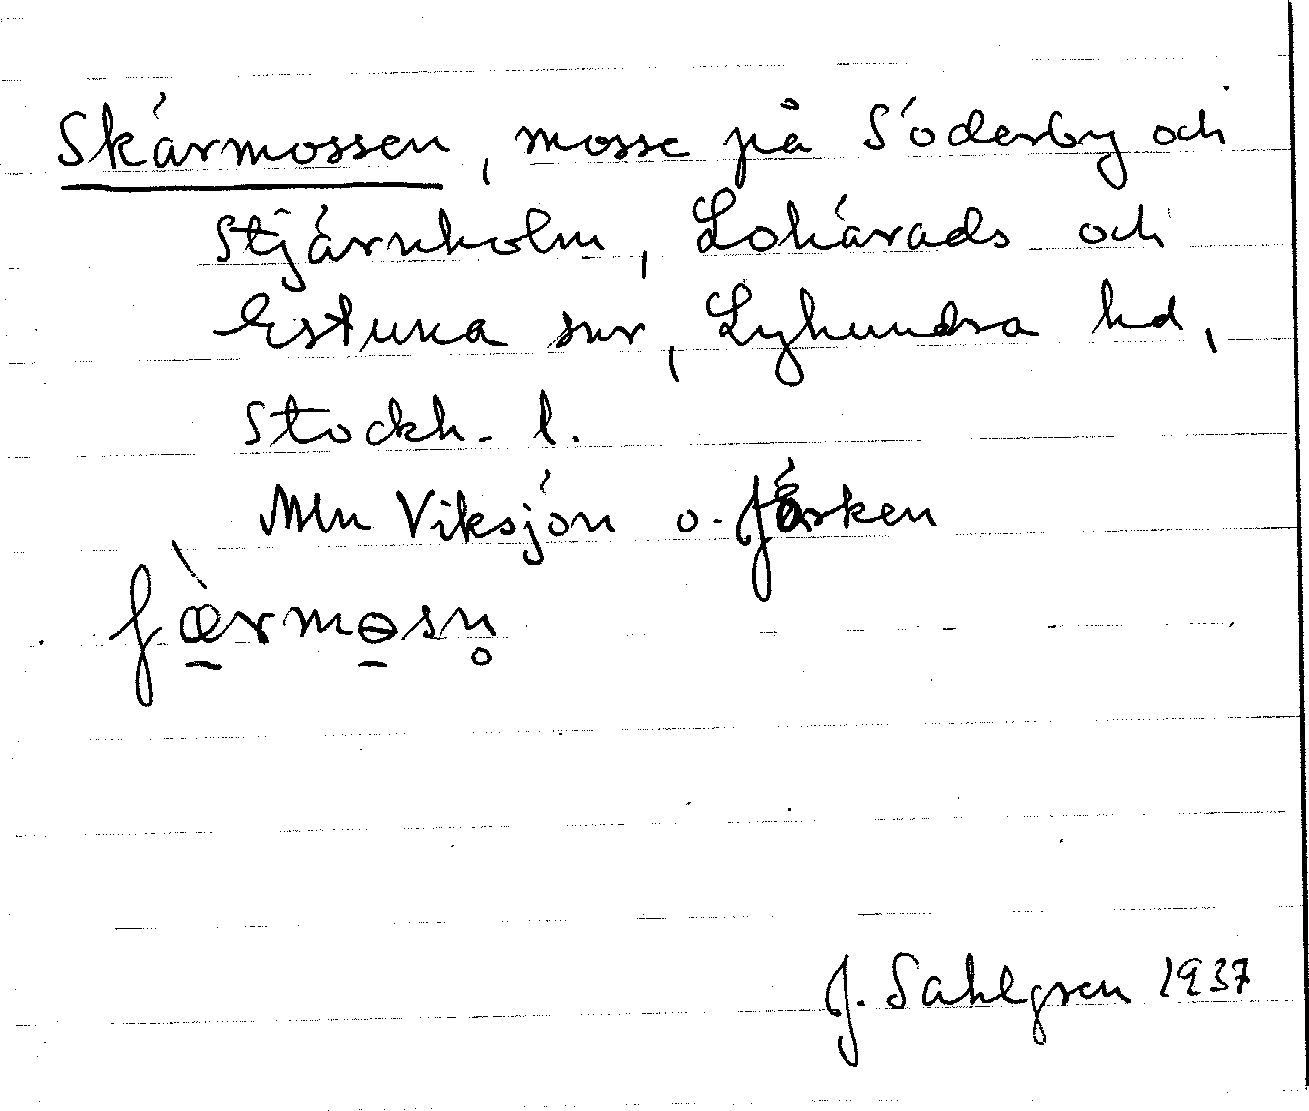 Skärmossen, mosse på Söderby och
Stjärnholm, Lohärads och
Estuna snr, Lyhundra hd,
Stockh. l.
Mln Viksjön o.
ʃæ̀rmɵsn̥
J. Sahlgren 1937